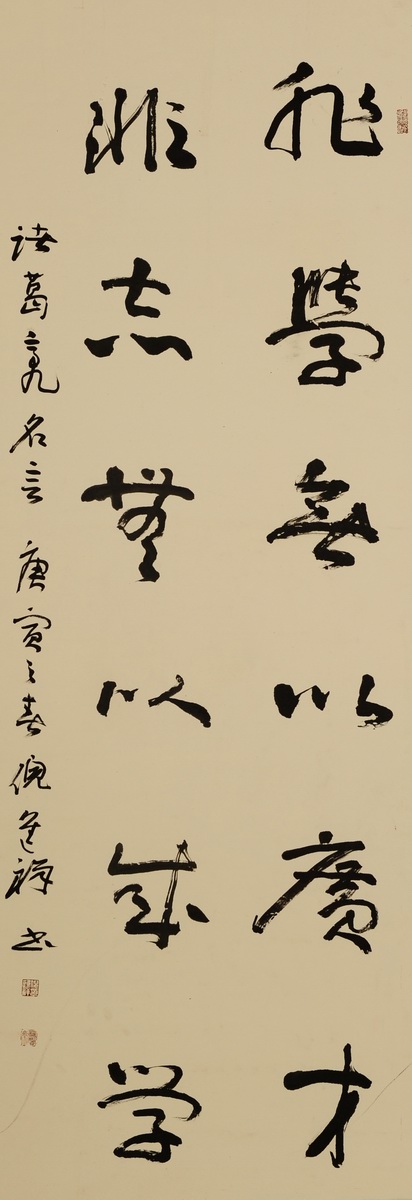 非學無以廣才
非志無以成学
诸葛亮名言 庚寅之春 倪進祥书